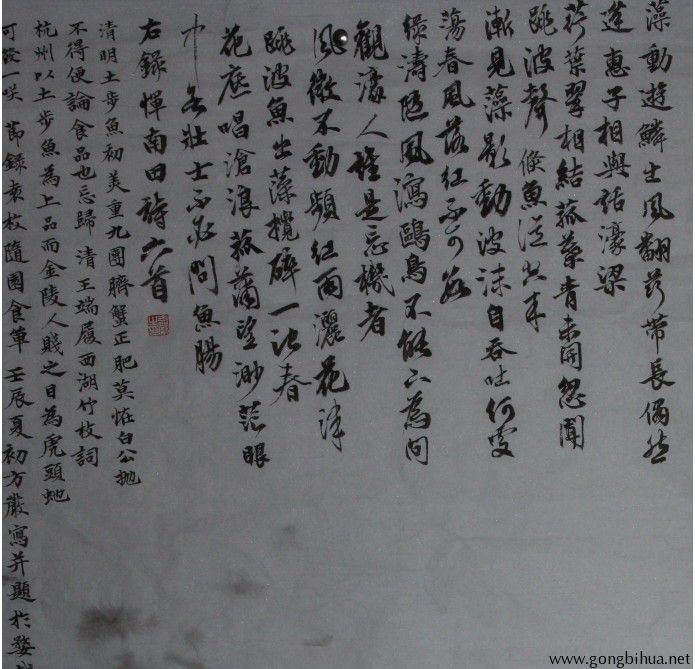 藻動遊鱗出風翻荇帶長偶然
逢惠子相與話濠梁
荇葉翠相結菰蒪青未開忽聞
跳波聲倏魚從出來
漸見藻影動波沫自吞吐何處
蕩春風落紅不可數
綠濤隨風瀉鷗鳥不能下為問
觀濠人誰是忘機者
風微不動頻紅雨灑花津
跳波魚出藻攪碎一池春
花底唱滄浪菰蒲望渺茫眼
中無壯士不必問魚腸
右錄惲南田詩六首
清明土步魚初美重九團臍蟹正肥莫怪白公拋
不得便論食品也忘歸 清王端履西湖竹枝詞
杭州以土步魚為上品而金陵人賤之目為虎頭蛇
可發一咲 節錄袁枚隨園食單 壬辰夏初方嚴寫并題於婺
www.gongbihua.net